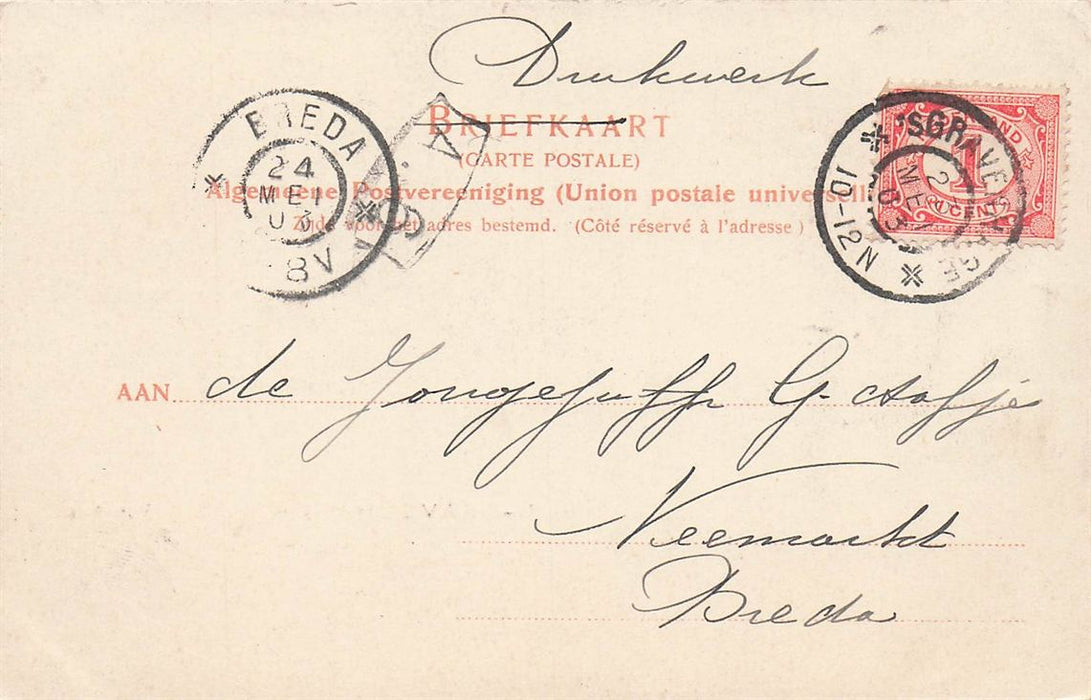 Drukwerk
BRIEFKAART
(CARTE POSTALE)
Algemeene Postvereeniging (Union postale universelle)
Zijde voor het adres bestemd. (Côté réservé à l'adresse)
BREDA
24
MEI
03
8V
'SGRAVENHAGE
MEI
03
10-12N
1
CENT
AAN de Jongejuffr G.
Veemarkt
Breda